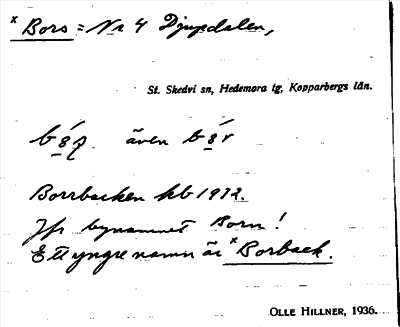 x Bors = Nr 4 Djupdalen,
St. Skedvi sn, Hedemora tg, Kopparbergs län.
även
Borrbacken kb 1912.
Jfr bynamnet Born!
Ett yngre namn är x Borback.
OLLE HILLNER, 1936.